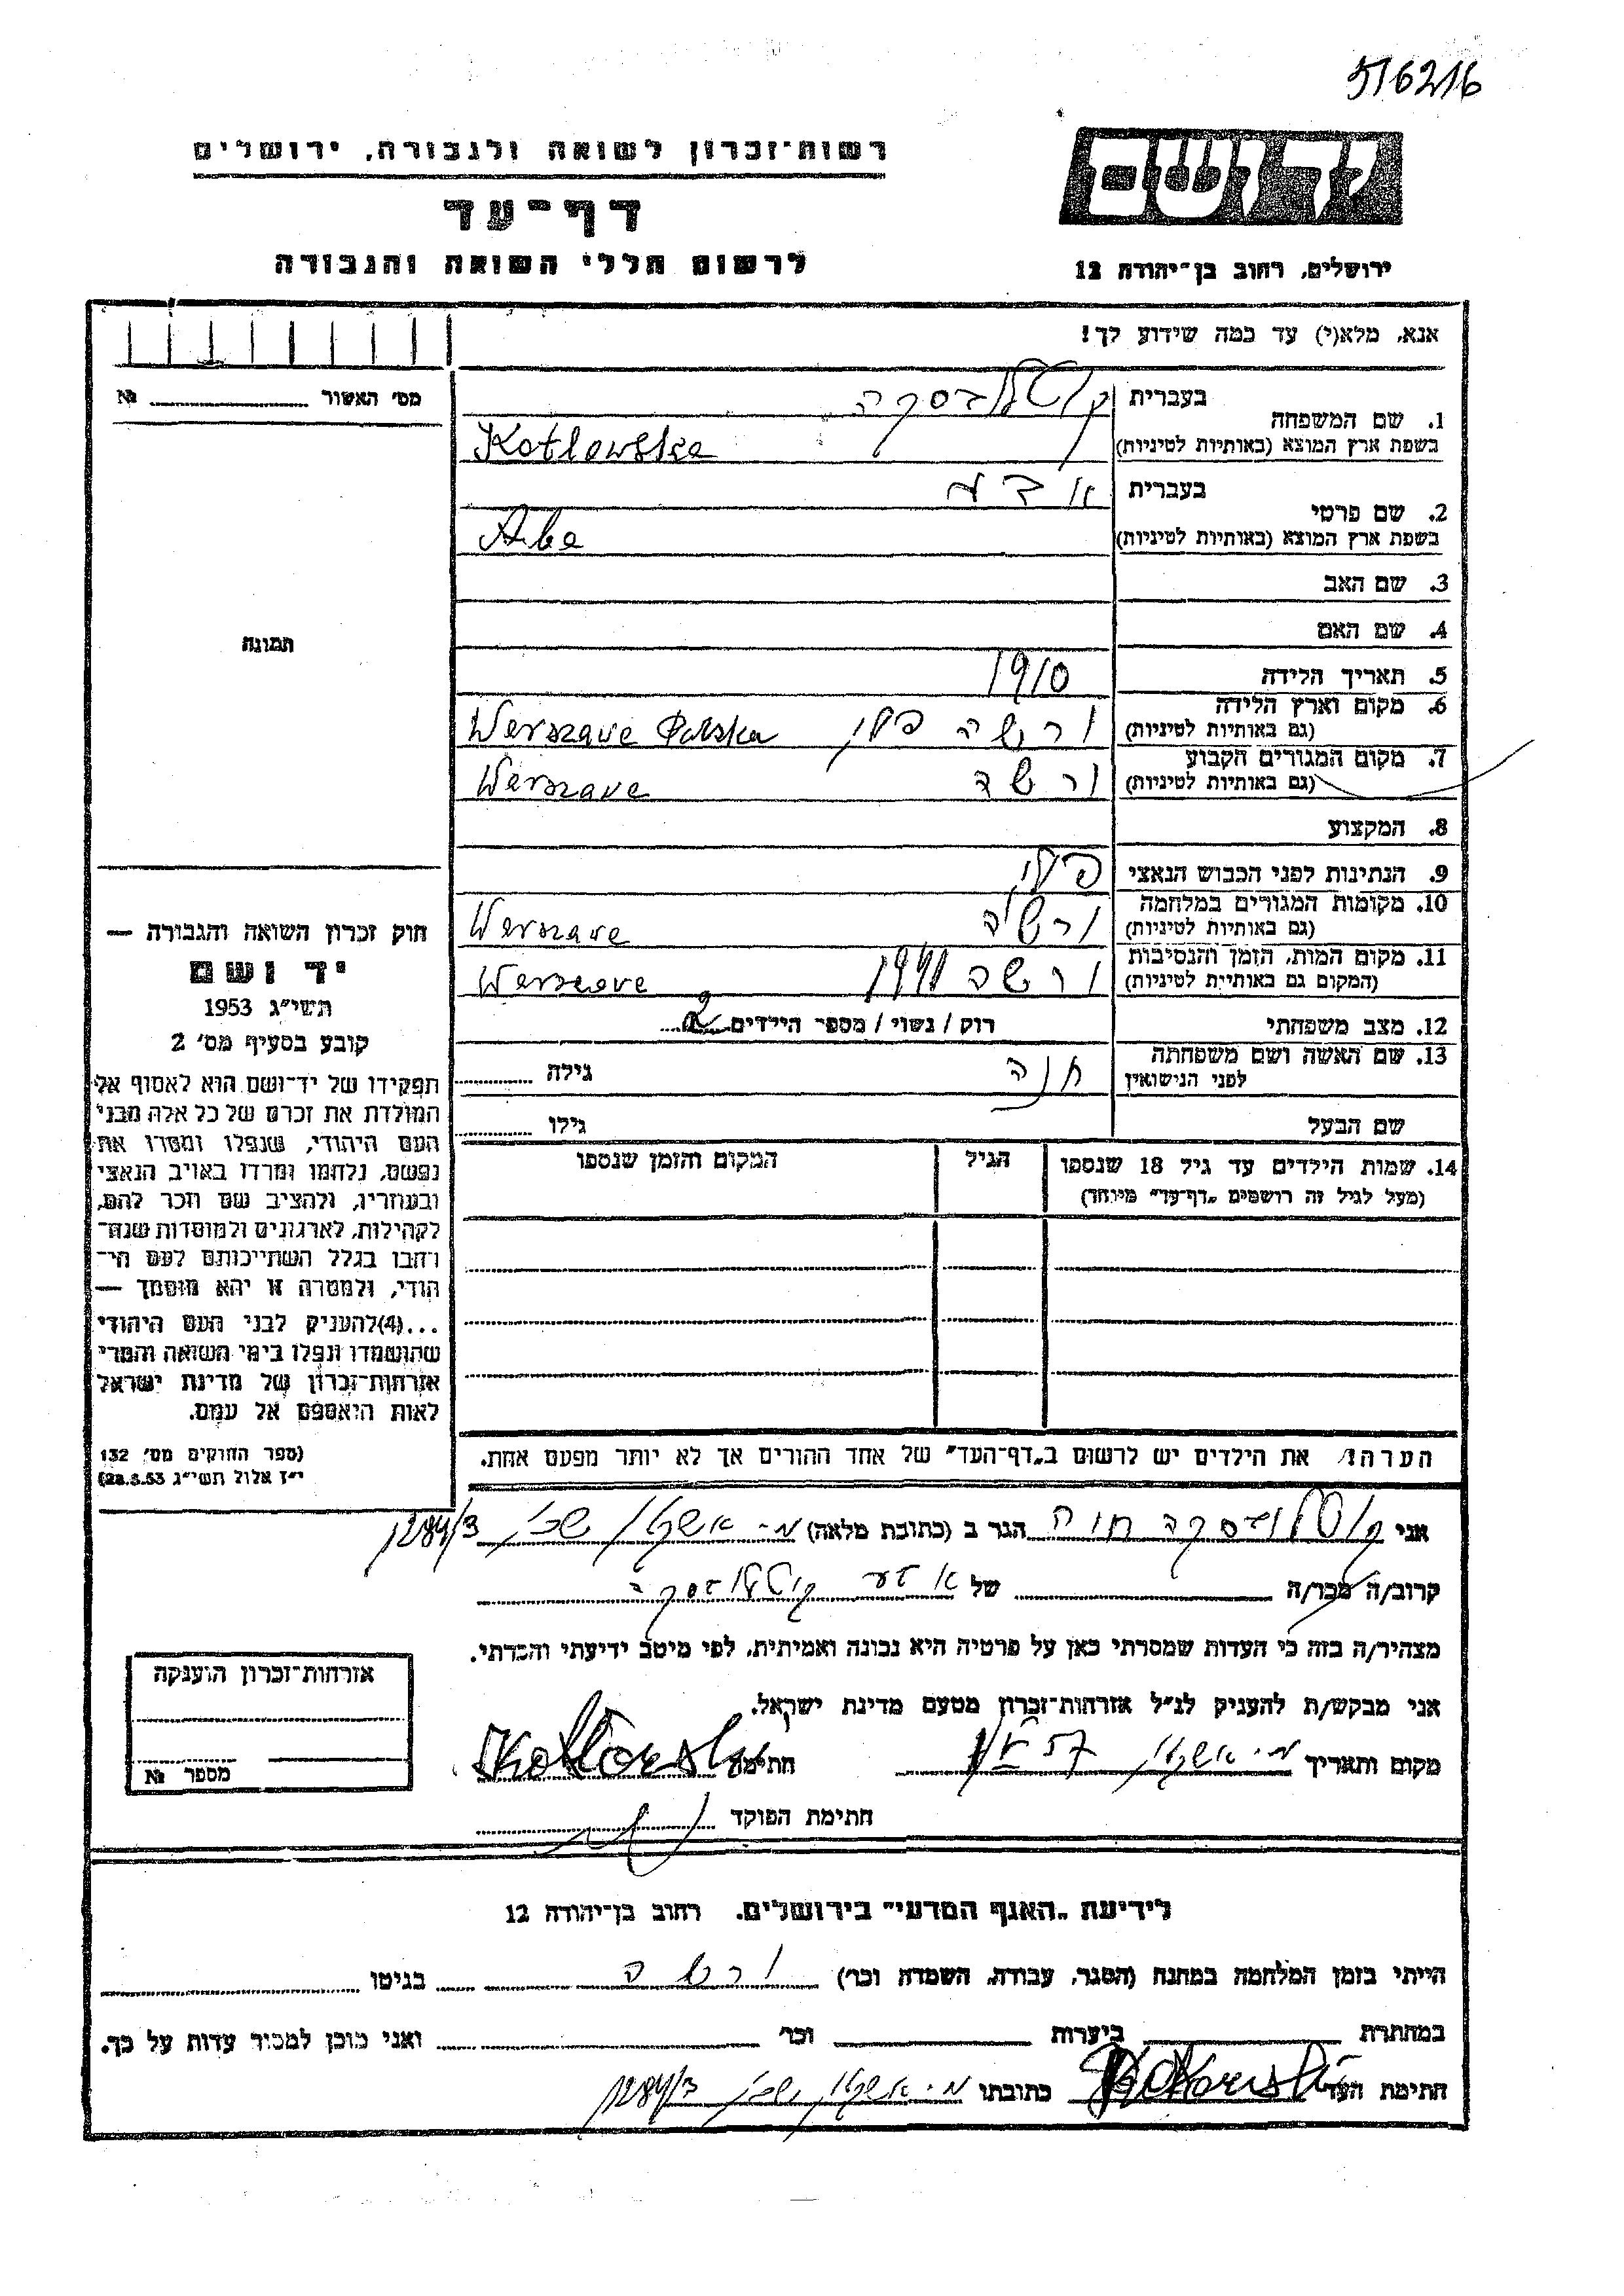 516216
יד ושם
רשות־זכרון לשואה ולגבורה, ירושלים
דף־עד
לרשום חללי השואה והגבורה
ירושלים, רחוב בן־יהודה 12
אנא, מלא(י) עד כמה שידוע לך!
מס' האשור № ........
תמונה
1. שם המשפחה
בעברית קוטלובסקה
בשפת ארץ המוצא (באותיות לטיניות) Kotlowska
2. שם פרטי
בעברית
בשפת ארץ המוצא (באותיות לטיניות) Aba
3. שם האב
4. שם האם
5. תאריך הלידה 1910
6. מקום וארץ הלידה ורשה פולין Werszave Polska
(גם באותיות לטיניות)
7. מקום המגורים הקבוע ורשה Werszave
(גם באותיות לטיניות)
8. המקצוע
9. הנתינות לפני הכבוש הנאצי פולין
10. מקומות המגורים במלחמה ורשה Werszave
(גם באותיות לטיניות)
11. מקום המות, הזמן והנסיבות ורשה 1941 Werszave
(המקום גם באותיות לטיניות)
12. מצב משפחתי רוק / נשוי / מספר הילדים 2
13. שם האשה ושם משפחתה חנה גילה ........
לפני הנישואין
שם הבעל גילו ........
14. שמות הילדים עד גיל 18 שנספו הגיל המקום והזמן שנספו
(מעל לגיל זה רושמים „דף־עד" מיוחד)
הערה: את הילדים יש לרשום ב„דף־העד" של אחד ההורים אך לא יותר מפעם אחת.
חוק זכרון השואה והגבורה —
יד ושם
תשי"ג 1953
קובע בסעיף מס' 2
תפקידו של יד־ושם הוא לאסוף אל
המולדת את זכרם של כל אלה מבני
העם היהודי, שנפלו ומסרו את
נפשם, נלחמו ומרדו באויב הנאצי
ובעוזריו, ולהציב שם וזכר להם,
לקהילות, לארגונים ולמוסדות שנח־
רבו בגלל השתייכותם לעם הי־
הודי, ולמטרה זו יהא מוסמך —
...(4)להעניק לבני העם היהודי
שהושמדו ונפלו בימי השואה והמרי
אזרחות־זכרון של מדינת ישראל
לאות היאספם אל עמם.
(ספר החוקים מס' 132
י"ז אלול תשי"ג 28.8.53)
אני קוטלובסקה חוה הגר ב (כתובת מלאה)
קרוב/ה מכר/ה של קוטלובסקה
מצהיר/ה בזה כי העדות שמסרתי כאן על פרטיה היא נכונה ואמיתית, לפי מיטב ידיעתי והכרתי.
אני מבקש/ת להעניק לנ"ל אזרחות־זכרון מטעם מדינת ישראל.
מקום ותאריך חתימה Kotlowska
חתימת הפוקד
אזרחות־זכרון הוענקה
מספר №
לידיעת „האגף המדעי" בירושלים, רחוב בן־יהודה 12
הייתי בזמן המלחמה במחנה (הסגר, עבודה, השמדה וכו') ורשה בגיטו
במחתרת ביערות וכו' ואני מוכן למסור עדות על כך.
חתימת העד Kotlowska כתובתו